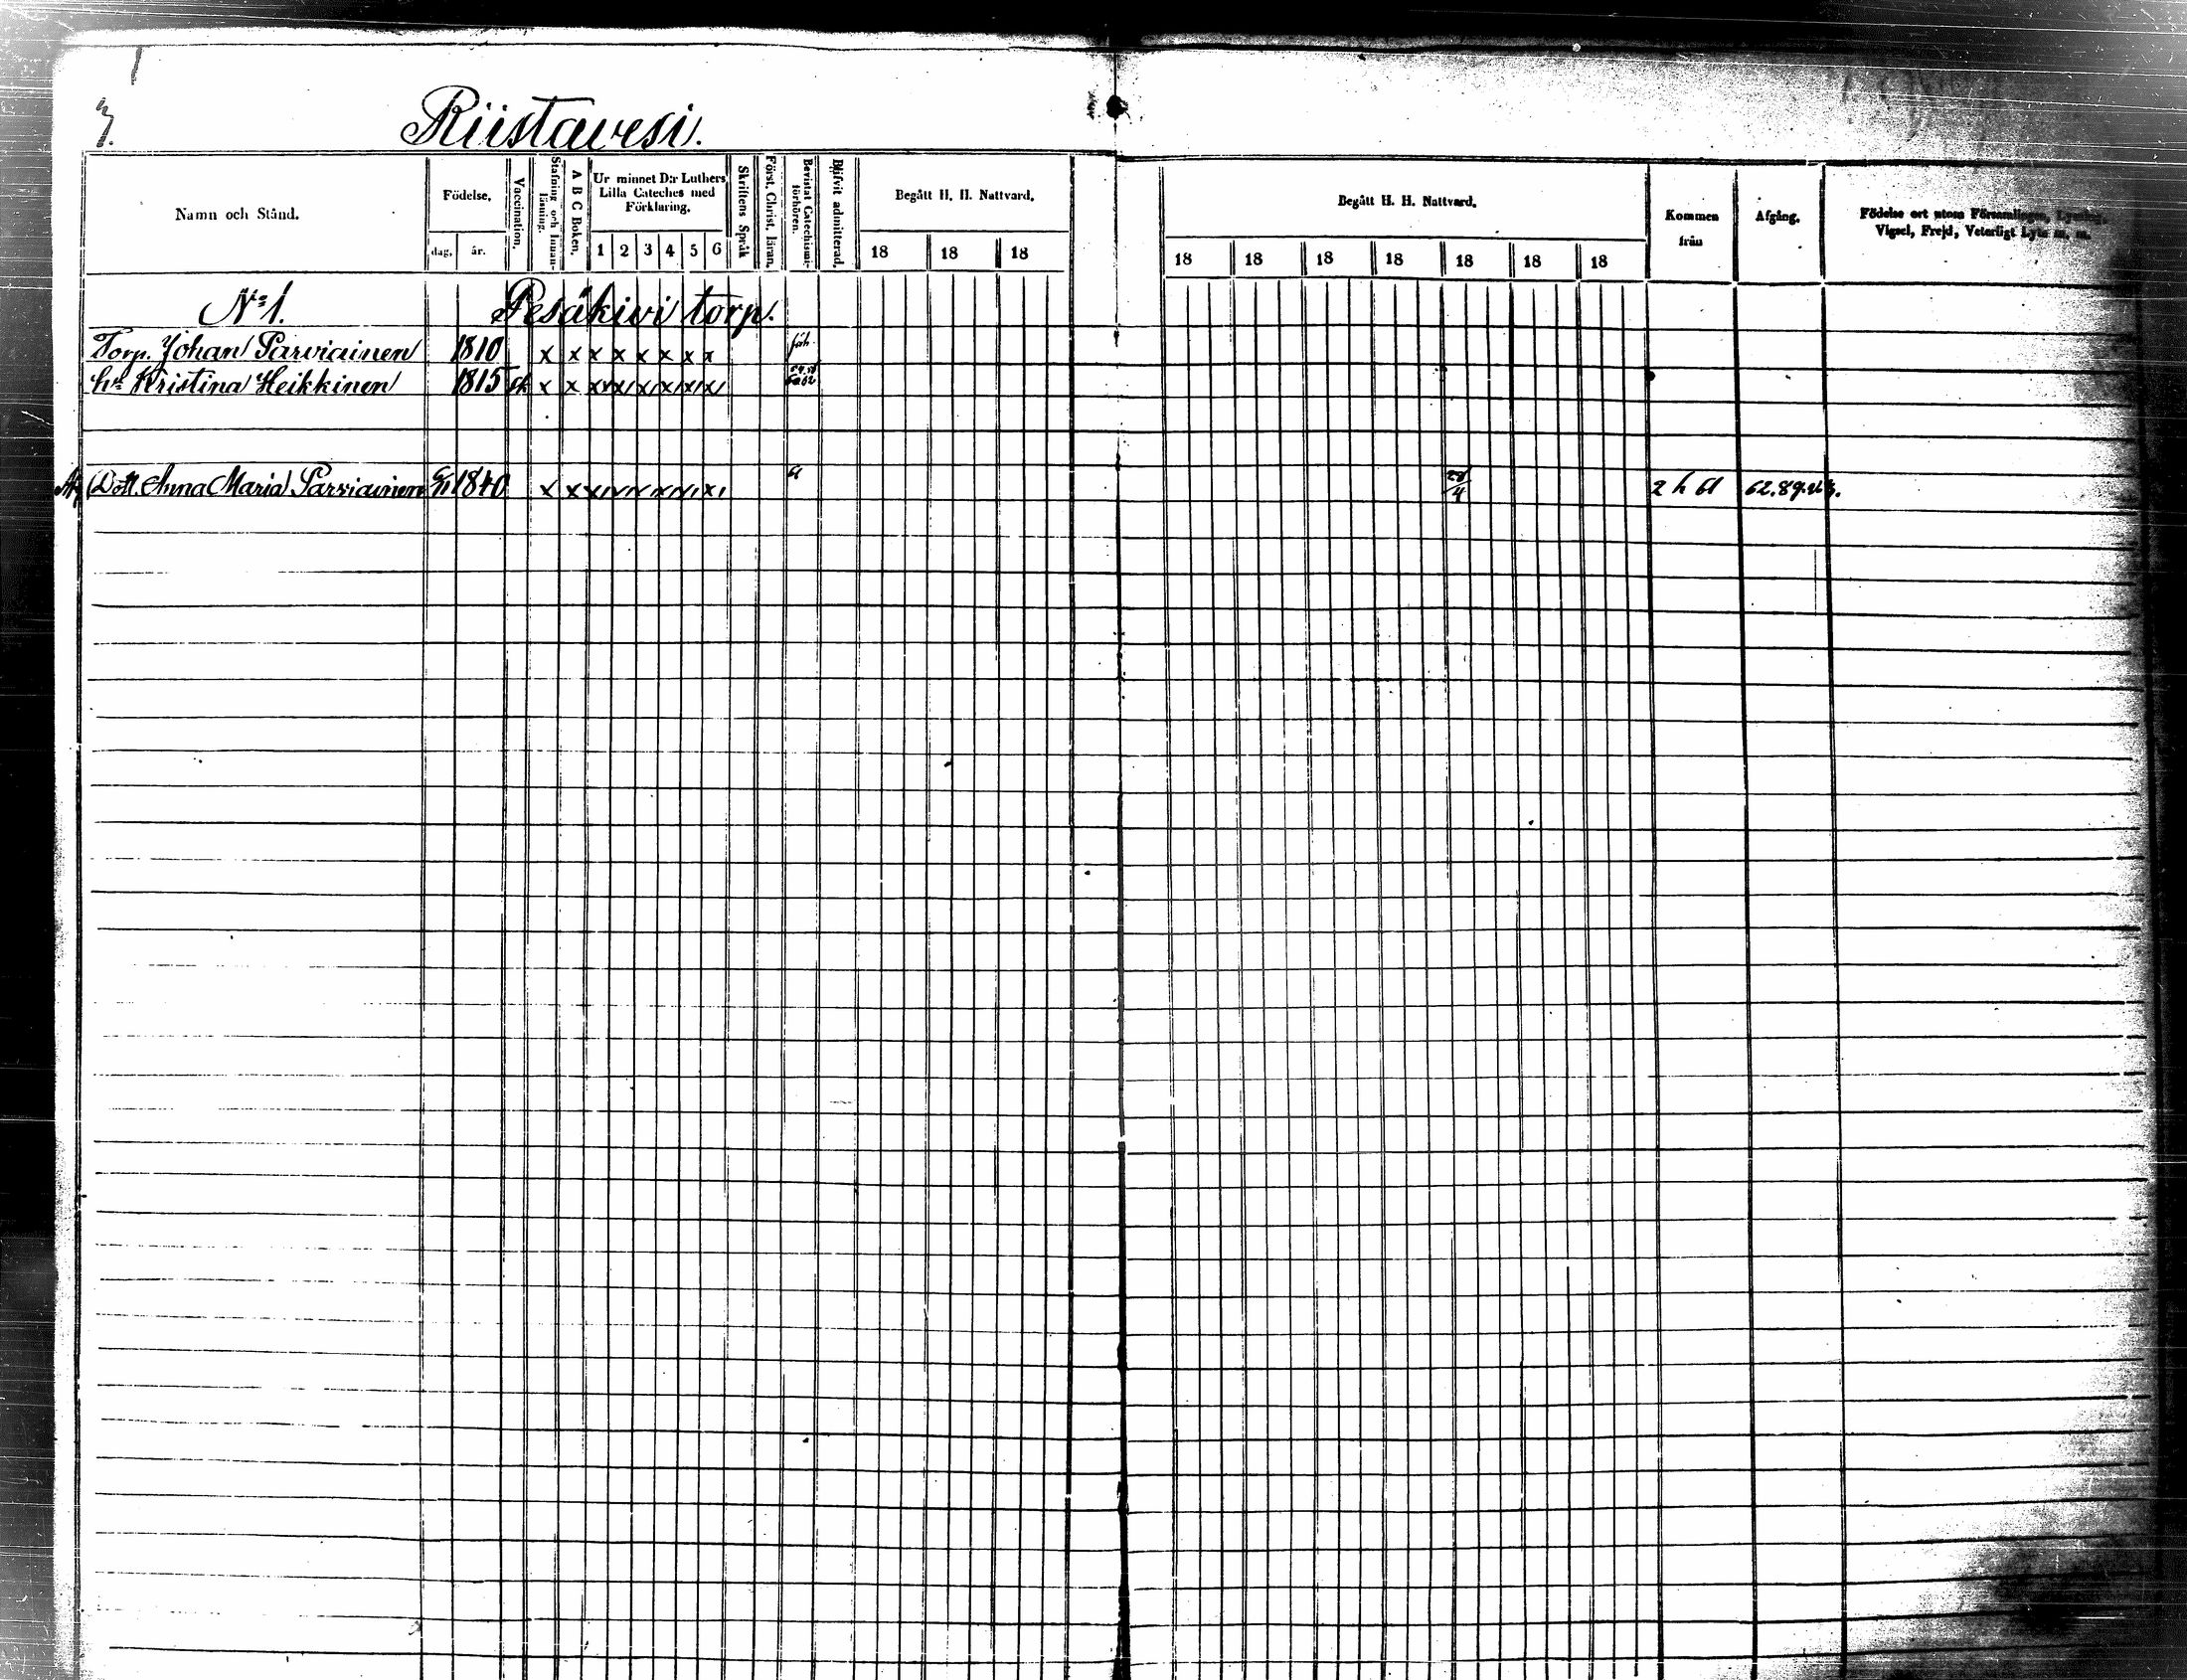 Riistavesi.
Namn och Stånd.
Födelse.
dag. år.
Vaccination.
Stafning och Innan-läsning.
A B C Boken.
Ur minnet D:r Luthers
Lilla Cateches med
Förklaring.
1 2 3 4 5 6
Skriftens Språk
Först. Christ. läran.
Bevistat Catechismi-förhören.
Blifvit admitterad.
Begått H. H. Nattvard.
18 18 18
Begått H. H. Nattvard.
18 18 18 18 18 18 18
Kommen
från
Afgång.
Födelse ort utom Församlingen, Lysning,
Vigsel, Frejd, Veterligt Lyte m. m.
No 1. Pesäkivi torp.
Torp. Johan Parviainen 1810 x x x x x x x x
hu Kristina Heikkinen 1815 x x x x x x x x
Dott. Anna Maria Parviainen 1840 x x x x x x x x 61 28/4 2 h 61